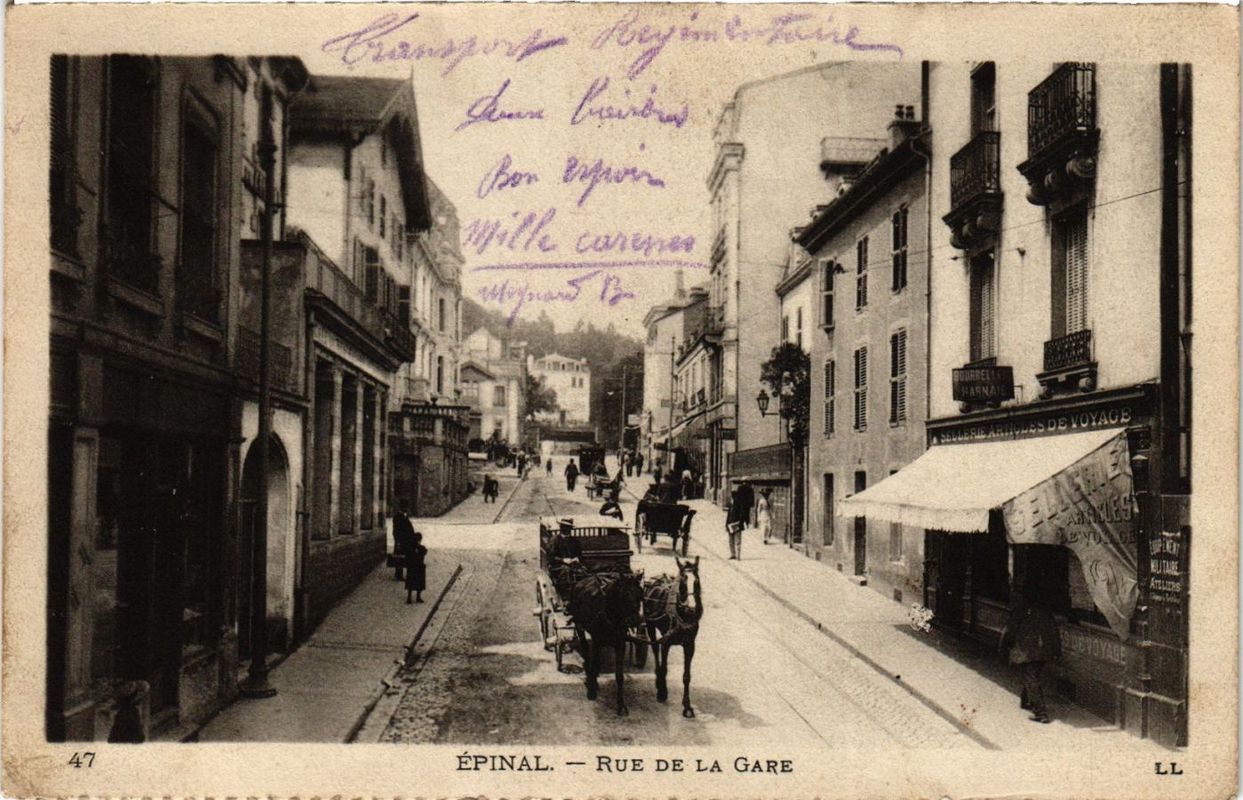 Transport Regimentaire
deux
Bon espoir
Mille caresses
B
BOURRELLERIE
HARNAIS
SELLERIE ARTICLES DE VOYAGE
SELLERIE
ARTICLES
DE VOYAGE
EQUIPEMENT
MILITAIRE
ATELIERS
DE VOYAGE
47
ÉPINAL. — RUE DE LA GARE
LL